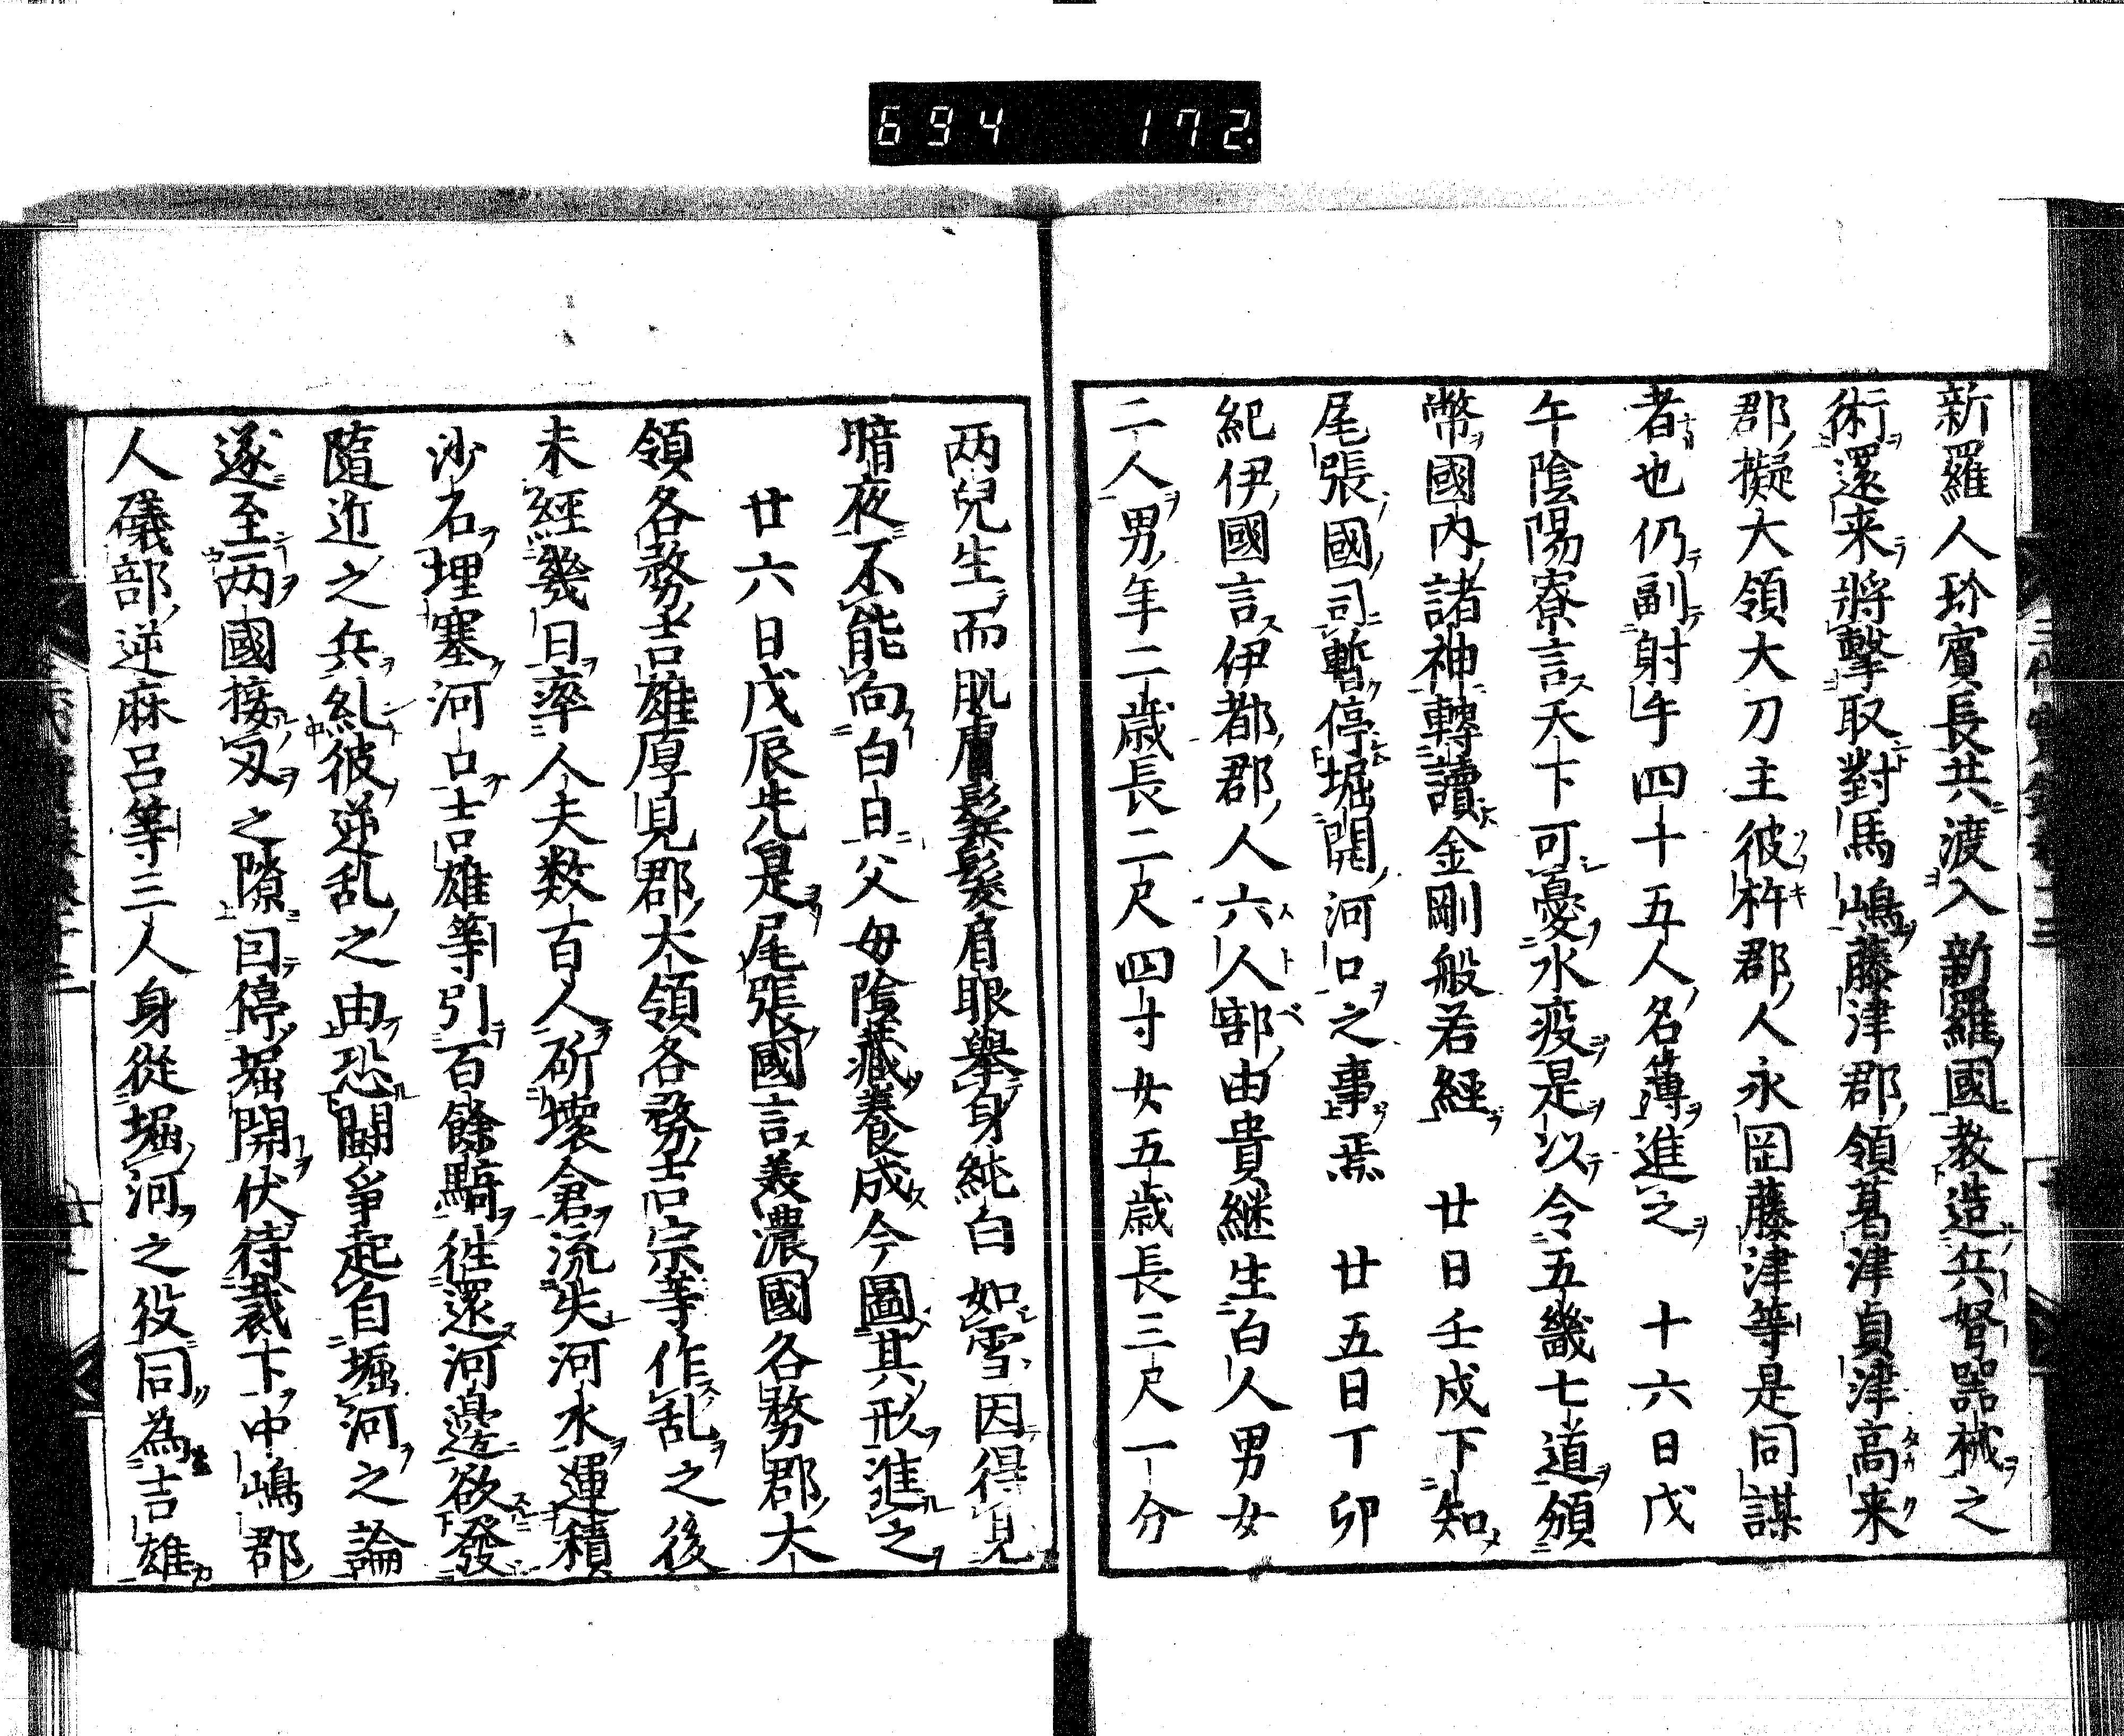 694 172.
新羅人珎賓長共渡入新羅國教造兵弩器械之
術還来將擊取對馬嶋藤津郡領葛津貞津高来
郡擬大領大刀主彼杵郡人永岡藤津等是同謀
者也仍副射手四十五人名簿進之 十六日戊
午陰陽寮言天下可憂水疫是以令五畿七道頒
幣國内諸神轉讀金剛般若經 廿日壬戌下知
尾張國司暫停堀開河口之事焉 廿五日丁卯
紀伊國言伊都郡人六人部由貴継生白人男女
二人男年二歳長二尺四寸女五歳長三尺一分
两兒生而肌膚鬢髮眉眼舉身純白如雪因得見
暗夜不能向白日父母陰藏養成今圖其形進之
廿六日戊辰先是尾張國言美濃國各務郡大
領各務吉雄厚見郡大領各務吉宗等作乱之後
未經幾日率人夫数百人斫壊倉流失河水運積
沙石埋塞河口吉雄等引百餘騎徃還河邊欲發
隨近之兵糺彼逆乱之由恐鬪爭起自堀河之論
遂至两國接刄之隙曰停堀開伏待裁下中嶋郡
人礒部逆麻呂等三人身從堀河之役同為吉雄